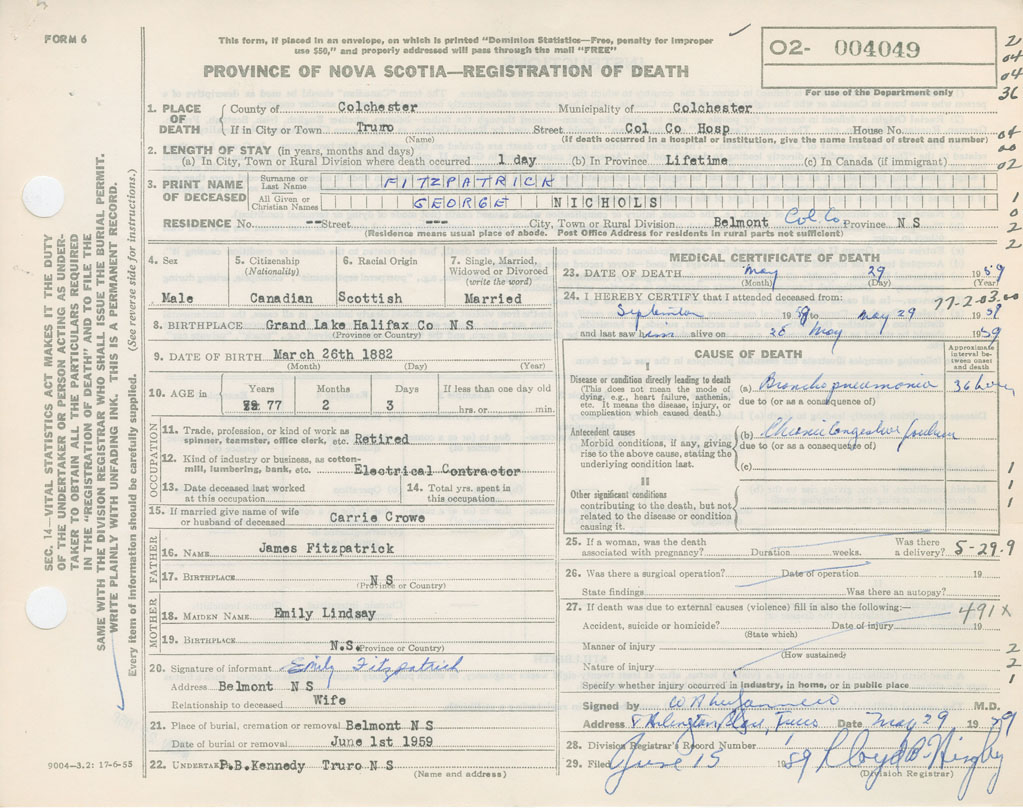 FORM 6
This form, if placed in an envelope, on which is printed "Dominion Statistics—Free, penalty for improper
use $50," and properly addressed will pass through the mail "FREE"
PROVINCE OF NOVA SCOTIA—REGISTRATION OF DEATH
02- 004049
For use of the Department only
2
04
04
36
1. PLACE OF DEATH
County of Colchester Municipality of Colchester
If in City or Town Truro Street Col Co Hosp House No.
(Name) (If death occurred in a hospital or institution, give the name instead of street and number)
04
00
02
2. LENGTH OF STAY (in years, months and days)
(a) In City, Town or Rural Division where death occurred 1 day (b) In Province Lifetime (c) In Canada (if immigrant)
3. PRINT NAME OF DECEASED
Surname or Last Name FITZPATRICK
All Given or Christian Names GEORGE NICHOLS
1
0
2
2
RESIDENCE No. -- Street --- City, Town or Rural Division Belmont Col Co Province N S
(Residence means usual place of abode. Post Office Address for residents in rural parts not sufficient)
4. Sex
Male
5. Citizenship (Nationality)
Canadian
6. Racial Origin
Scottish
7. Single, Married, Widowed or Divorced (write the word)
Married
8. BIRTHPLACE Grand Lake Halifax Co N S
(Province or Country)
9. DATE OF BIRTH March 26th 1882
(Month) (Day) (Year)
10. AGE in
Years Months Days If less than one day old
77 2 3 hrs. or min.
OCCUPATION
11. Trade, profession, or kind of work as
spinner, teamster, office clerk, etc. Retired
12. Kind of industry or business, as cotton-
mill, lumbering, bank, etc. Electrical Contractor
13. Date deceased last worked
at this occupation
14. Total yrs. spent in
this occupation
15. If married give name of wife
or husband of deceased Carrie Crowe
FATHER
16. NAME James Fitzpatrick
17. BIRTHPLACE N S
(Province or Country)
MOTHER
18. MAIDEN NAME Emily Lindsay
19. BIRTHPLACE N.S.
(Province or Country)
20. Signature of informant Emily Fitzpatrick
Address Belmont N S
Relationship to deceased Wife
21. Place of burial, cremation or removal Belmont N S
Date of burial or removal June 1st 1959
22. UNDERTAKER P.B.Kennedy Truro N S
(Name and address)
MEDICAL CERTIFICATE OF DEATH
23. DATE OF DEATH May 29 1959
(Month) (Day) (Year)
77-2-03.00
24. I HEREBY CERTIFY that I attended deceased from:
September 19 to May 29 1959
and last saw him alive on 28 May 1959
CAUSE OF DEATH
Approximate interval between onset and death
I
Disease or condition directly leading to death
(This does not mean the mode of
dying, e.g., heart failure, asthenia,
etc. It means the disease, injury, or
complication which caused death.)
(a) Bronchopneumonia 36 hours
due to (or as a consequence of)
Antecedent causes
Morbid conditions, if any, giving
rise to the above cause, stating the
underlying condition last.
(b) Chronic Congestive failure
due to (or as a consequence of)
(c)
1
1
1
II
Other significant conditions
contributing to the death, but not
related to the disease or condition
causing it.
25. If a woman, was the death
associated with pregnancy? Duration weeks. Was there
a delivery? 5-29-9
26. Was there a surgical operation? Date of operation 19
State findings Was there an autopsy?
27. If death was due to external causes (violence) fill in also the following:—
491X
Accident, suicide or homicide? Date of injury 19
(State which)
Manner of injury 2
(How sustained)
Nature of injury 2
Specify whether injury occurred in industry, in home, or in public place 1
Signed by M.D.
Address Truro Date May 29 1959
28. Division Registrar's Record Number
29. Filed June 15 1959 Lloyd
(Division Registrar)
9004-3.2: 17-6-55
SEC. 14—VITAL STATISTICS ACT MAKES IT THE DUTY
OF THE UNDERTAKER OR PERSON ACTING AS UNDER-
TAKER TO OBTAIN ALL THE PARTICULARS REQUIRED
IN THE "REGISTRATION OF DEATH" AND TO FILE THE
SAME WITH THE DIVISION REGISTRAR WHO SHALL ISSUE THE BURIAL PERMIT.
WRITE PLAINLY WITH UNFADING INK. THIS IS A PERMANENT RECORD.
Every item of information should be carefully supplied. (See reverse side for instructions.)